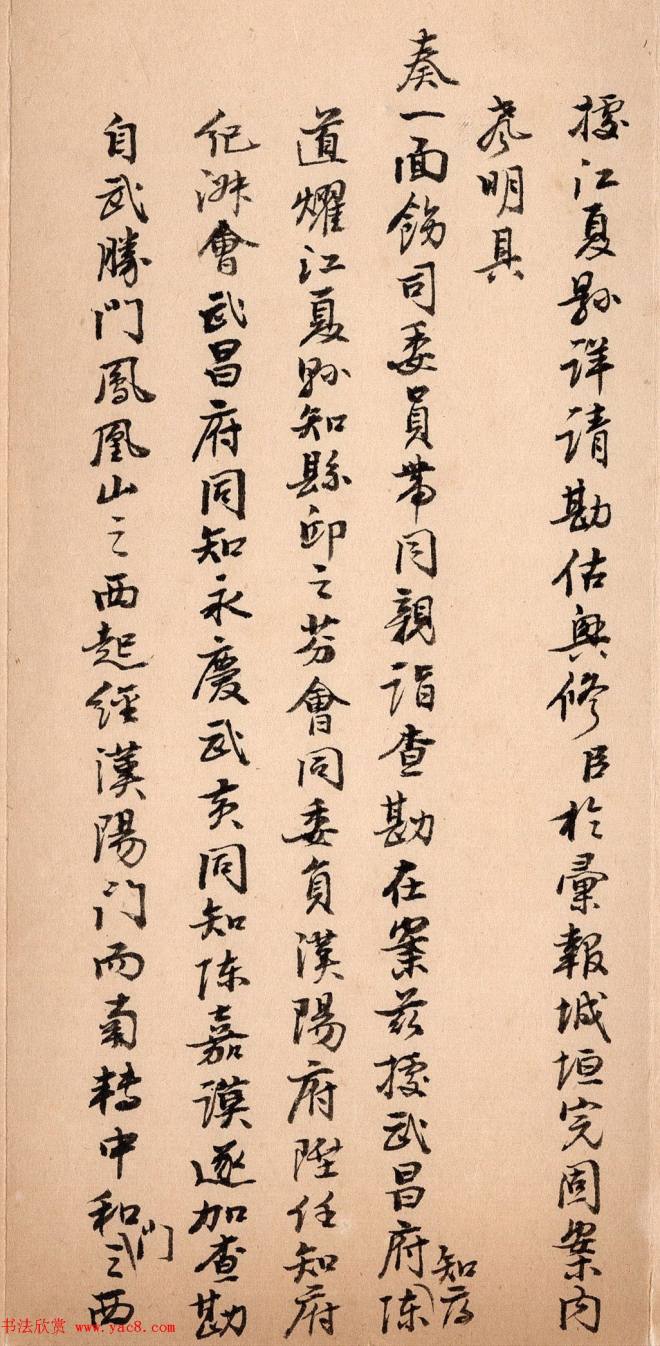 據江夏縣詳請勘估興修臣於彙報城垣完固案內
聲明具
奏一面飭司委員帶同親詣查勘在案茲據武昌府知府陳
道燿江夏縣知縣邱之芬會同委員漢陽府陞任知府
會武昌府同知永慶武黃同知陳嘉謨逐加查勘
自武勝門鳳凰山之西起經漢陽門而南轉中和門之西
书法欣赏 www.yac8.com